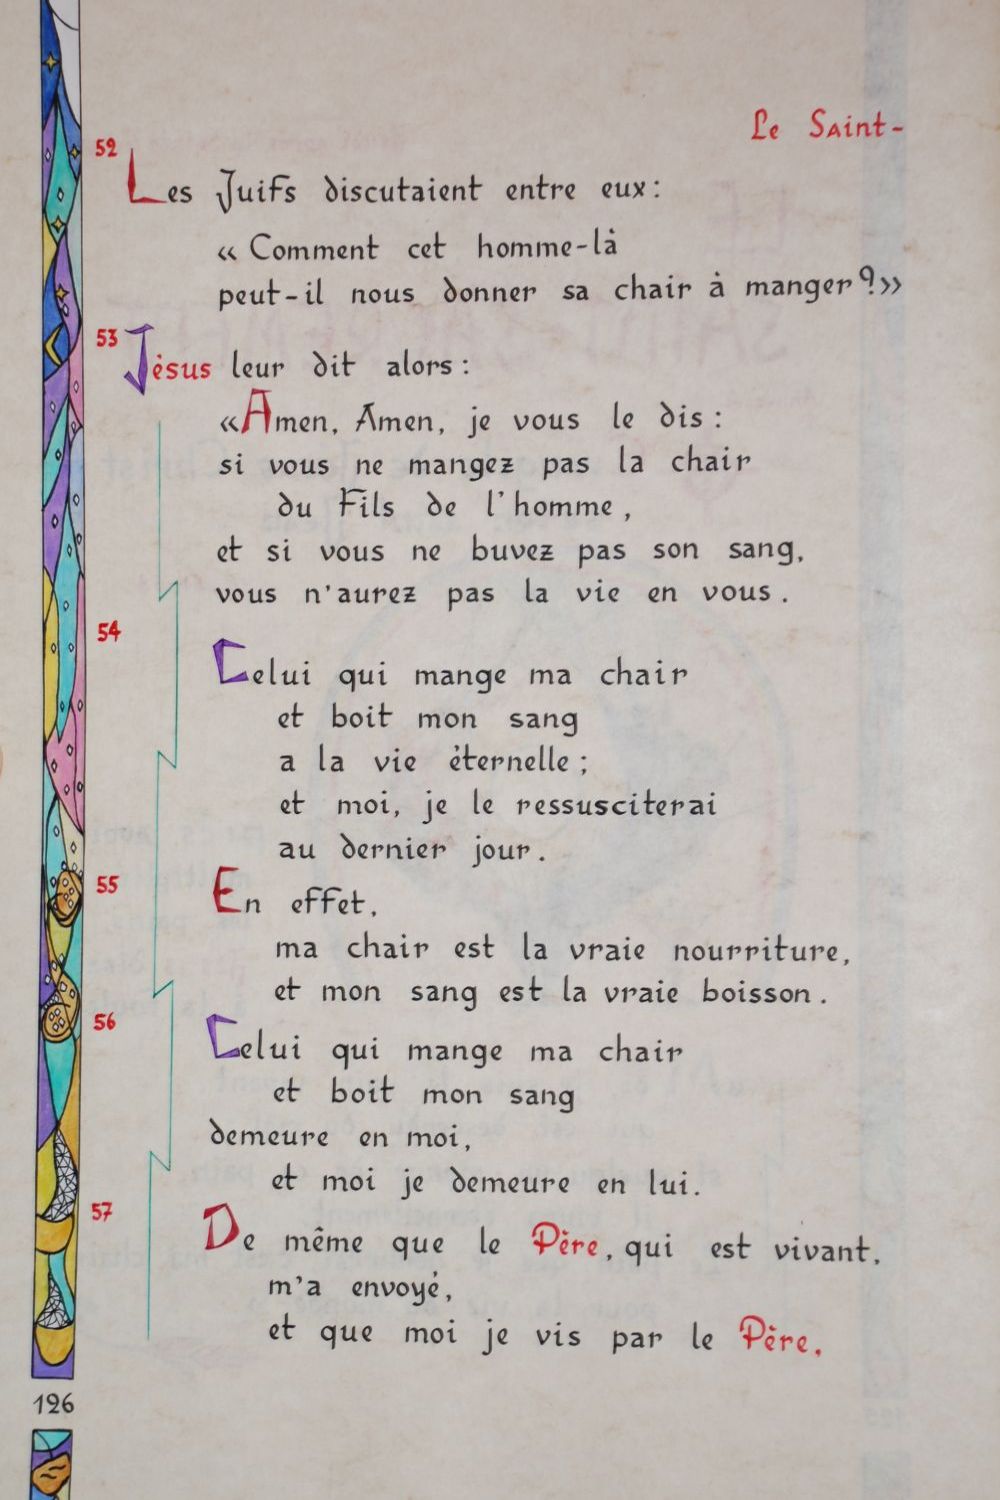 Le Saint-
52
Les Juifs discutaient entre eux :
« Comment cet homme-là
peut-il nous donner sa chair à manger ? »
53
Jésus leur dit alors :
« Amen, Amen, je vous le dis :
si vous ne mangez pas la chair
du Fils de l'homme,
et si vous ne buvez pas son sang,
vous n'aurez pas la vie en vous.
54
Celui qui mange ma chair
et boit mon sang
a la vie éternelle ;
et moi, je le ressusciterai
au dernier jour.
55
En effet,
ma chair est la vraie nourriture,
et mon sang est la vraie boisson.
56
Celui qui mange ma chair
et boit mon sang
demeure en moi,
et moi je demeure en lui.
57
De même que le Père, qui est vivant,
m'a envoyé,
et que moi je vis par le Père,
126